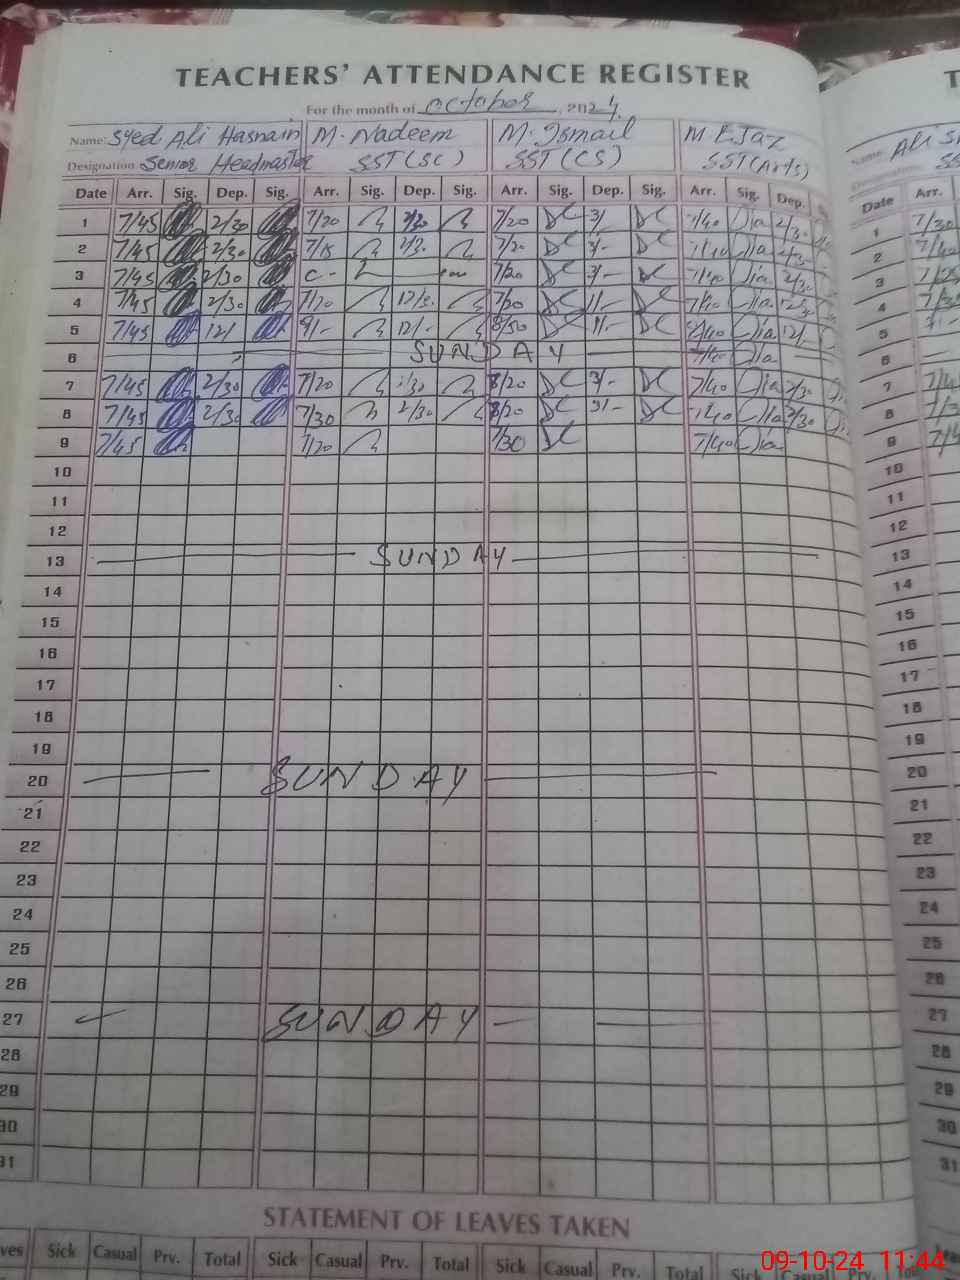 TEACHERS' ATTENDANCE REGISTER
For the month of October, 2024.
Name: Syed Ali Hasnain M. Nadeem M. Ismail M. Ejaz Name: Ali
Designation Senior Headmaster SST (SC) SST (CS) SST (Arts)
Date Arr. Sig. Dep. Sig. Arr. Sig. Dep. Sig. Arr. Sig. Dep. Sig. Arr. Sig. Dep. Date Arr.
1 7/45 2/30 7/20 2/30 7/20 3/ 7/40 2/30 1 7/30
2 7/45 2/30 7/15 2/3. 7/20 3/- 7/40 2/3 2
3 7/45 2/30 C- 7/20 3/- 7/40 2/30 3
4 7/45 2/30 7/20 12/3. 7/20 11/- 7/40 4
5 7/45 12/ 12/- 8/50 7/40 12/ 5
6 SUNDAY 7/40 6
7 7/45 2/30 7/20 8/20 3/- 7/40 2/30 7
8 7/45 2/30 7/30 2/30 8/20 7/40 2/30 8
9 7/45 7/20 7/30 7/40 9
10 10
11 11
12 12
13 SUNDAY 13
14 14
15 15
16 16
17 17
18 18
19 19
20 SUNDAY 20
21 21
22 22
23 23
24 24
25 25
26 26
27 SUNDAY 27
28 28
29 29
30 30
31 31
STATEMENT OF LEAVES TAKEN
Sick Casual Prv. Total Sick Casual Prv. Total Sick Casual Prv. Total Sick Casual Prv.
09-10-24 11:44